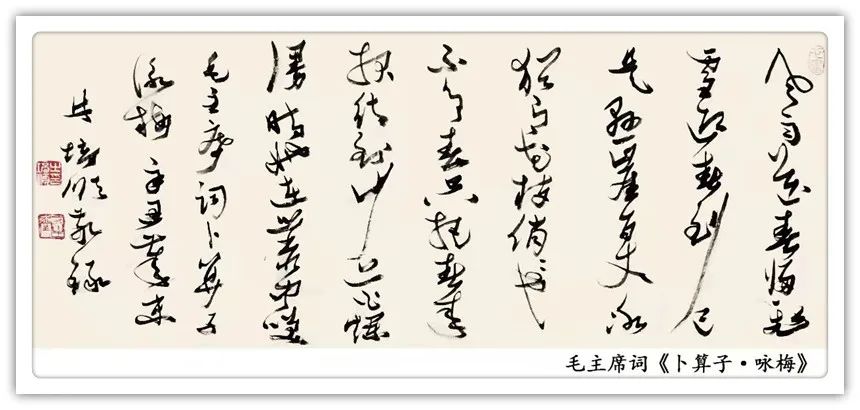 风雨送春归飞
雪迎春到已
是悬崖百丈冰
犹有花枝俏也
不争春只把春来
报待到山花烂
漫时她在丛中笑
毛主席词卜算子
咏梅辛丑
培顺敬录
毛主席词《卜算子·咏梅》